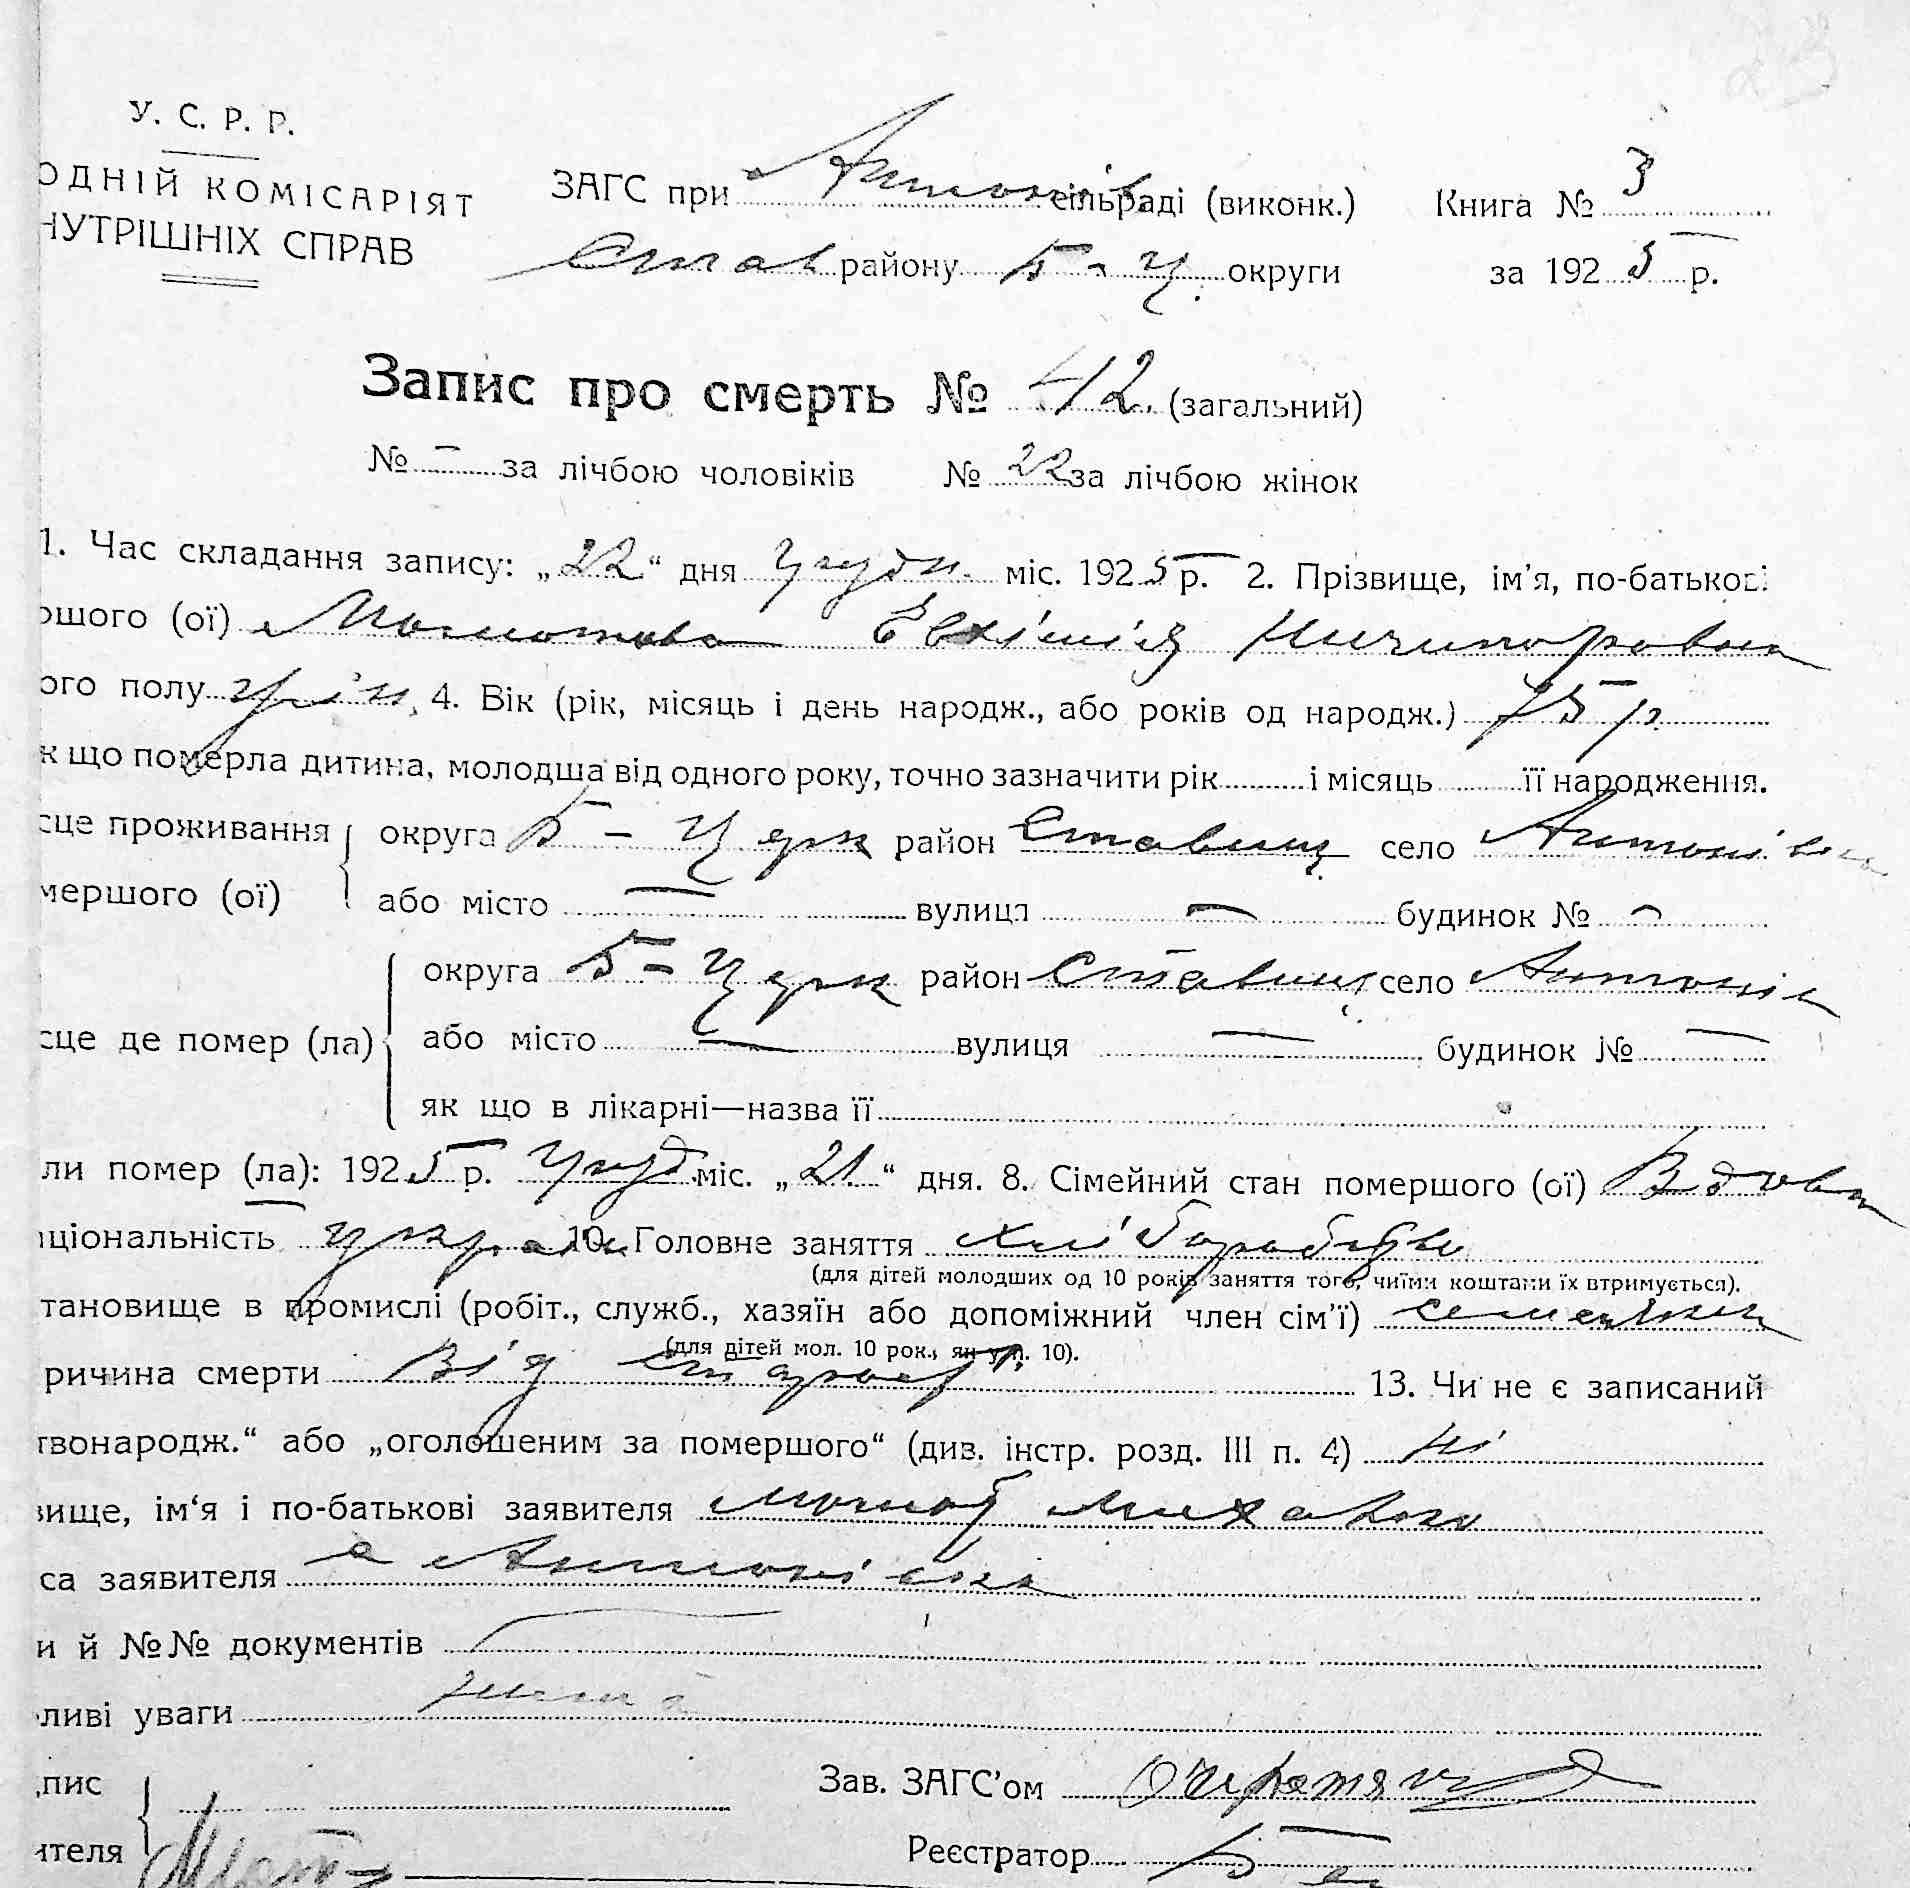 У. С. Р. Р.
ОДНІЙ КОМІСАРІЯТ
НУТРІШНІХ СПРАВ
ЗАГС при Антонів сільраді (виконк.) Книга № 3
Став району Б-Ц. округи за 1925 р.
Запис про смерть № 42. (загальний)
№ – за лічбою чоловіків № 22 за лічбою жінок
1. Час складання запису: „22“ дня Грудн. міс. 1925 р. 2. Прізвище, ім'я, по-батькові
ршого (ої) Евхімія Ничипоровна
ого полу жін. 4. Вік (рік, місяць і день народж., або років од народж.) 75 р.
к що померла дитина, молодша від одного року, точно зазначити рік і місяць її народження.
сце проживання округа Б-Церк район Ставищ. село Антонівка
мершого (ої) або місто — вулиця — будинок № –
округа Б-Церк район Ставищ. село Антонів
сце де помер (ла) або місто — вулиця — будинок № —
як що в лікарні—назва її
ли помер (ла): 1925 р. Груд. міс. „21.“ дня. 8. Сімейний стан помершого (ої) Вдова
ціональність україн 10. Головне заняття хліборобство
(для дітей молодших од 10 років заняття того, чиїми коштами їх втримується).
тановище в промислі (робіт., служб., хазяїн або допоміжний член сім'ї)
(для дітей мол. 10 рок., як у п. 10).
ричина смерти Від старост. 13. Чи не є записаний
твонародж.“ або „оголошеним за помершого“ (див. інстр. розд. III п. 4) ні
вище, ім'я і по-батькові заявителя
са заявителя с Антонівка
и й №№ документів —
ливі уваги нема
пис Зав. ЗАГС'ом
ителя Реєстратор